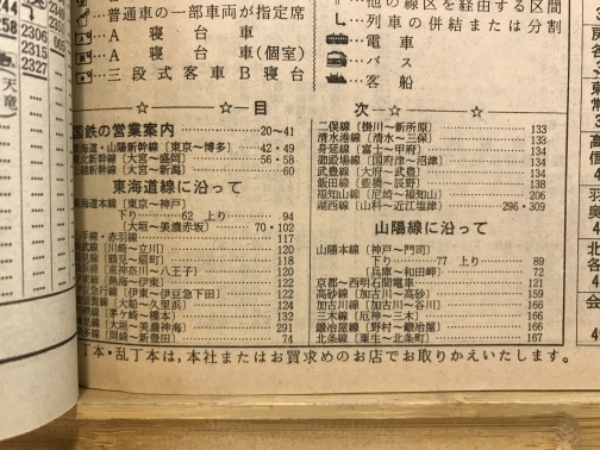 244
258
2306
2315
2327
2349
2351
005
天竜
普通車の一部車両が指定席
A寝台車
A寝台車(個室)
三段式客車B寝台
他の線区を経由する区間
列車の併結または分割
電車
バス
客船
☆ ☆ 目 次 ☆ ☆
国鉄の営業案内 20～41
東海道・山陽新幹線〔東京～博多〕 42・49
東北新幹線〔大宮～盛岡〕 56・58
上越新幹線〔大宮～新潟〕 60
東海道線に沿って
東海道本線〔東京～神戸〕
下り 62 上り 94
〔大垣～美濃赤坂〕 70・102
山手線・赤羽線 117
南武線〔川崎～立川〕 120
鶴見線〔鶴見～扇町〕 118
横浜線〔東神奈川～八王子〕 120
伊東線〔熱海～伊東〕 122
伊豆急行線〔伊東～伊豆急下田〕 122
横須賀線〔大船～久里浜〕 124
相模線〔茅ケ崎～橋本〕 132
樽見線〔大垣～美濃神海〕 291
岡多線〔岡崎～新豊田〕 74
二俣線〔掛川～新所原〕 133
清水港線〔清水～三保〕 133
身延線〔富士～甲府〕 134
御殿場線〔国府津～沼津〕 134
武豊線〔大府～武豊〕 134
飯田線〔豊橋～辰野〕 138
福知山線〔尼崎～福知山〕 206
湖西線〔山科～近江塩津〕 296・309
山陽線に沿って
山陽本線〔神戸～門司〕
下り 77 上り 89
〔兵庫～和田岬〕 72
京都～西明石間電車 121
高砂線〔加古川～高砂〕 159
加古川線〔加古川～谷川〕 166
三木線〔厄神～三木〕 166
鍛冶屋線〔野村～鍛冶屋〕 166
北条線〔粟生～北条町〕 167
丁本・乱丁本は，本社またはお買求めのお店でお取りかえいたします。